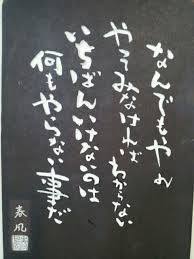 なんでもやれ
やってみなければ
わからない
いちばんいけないのは
何もやらない事だ
春風